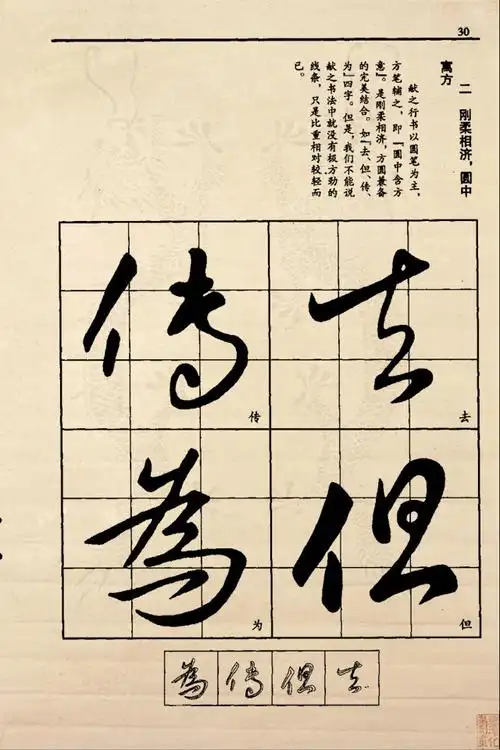 30
二 刚柔相济,圆中
寓方
献之行书以圆笔为主,
方笔辅之,即『圆中含方
意』。是刚柔相济,方圆兼备
的完美结合。如『去、但、传、
为』四字。但是,我们不能说
献之书法中就没有极方劲的
线条,只是比重相对较轻而
已。
去
去
但
但
傳
传
為
为
去但傳為